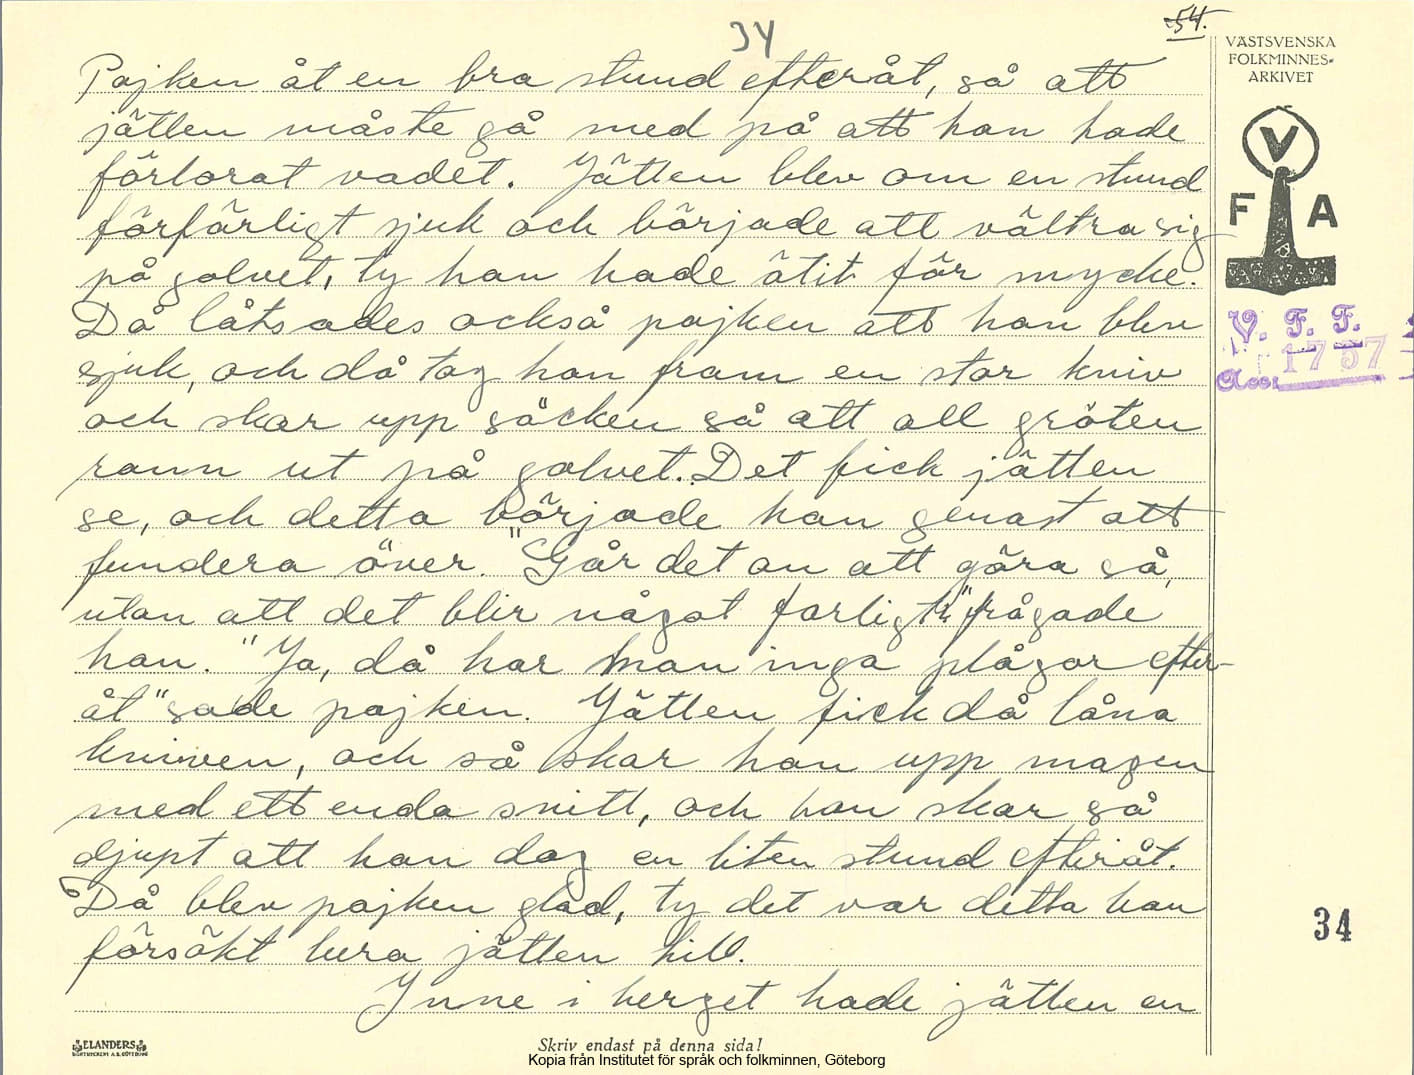 34
54.
VÄSTSVENSKA
FOLKMINNES-
ARKIVET
V
F A
V. F. F.
1757
Acc:
Pojken åt en bra stund efteråt, så att
jätten måste gå med på att han hade
förlorat vadet. Jätten blev om en stund
förfärligt sjuk och började att vältra sig
på golvet, ty han hade ätit för mycke.
Då låtsades också pojken att han blev
sjuk, och då tog han fram en stor kniv
och skar upp säcken så att all gröten
rann ut på golvet. Det fick jätten
se, och detta började han genast att
fundera över. "Går det an att göra så,
utan att det blir något farligt", frågade
han. "Ja, då har man inga plågor efter-
åt" sade pojken. Jätten fick då låna
kniven, och så skar han upp magen
med ett enda snitt, och han skar så
djupt att han dog en liten stund efteråt.
Då blev pojken glad, ty det var detta han
försökt lura jätten till.
Inne i berget hade jätten en
34
ELANDERS
BOKTRYCKERI A.B. GÖTEBORG
Skriv endast på denna sida!
Kopia från Institutet för språk och folkminnen, Göteborg